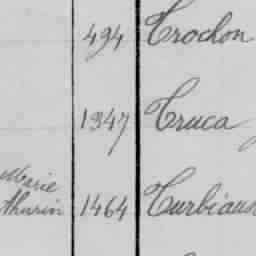 494 Trochon
1347 Truca
Marie
thurin 1464 Turbéau